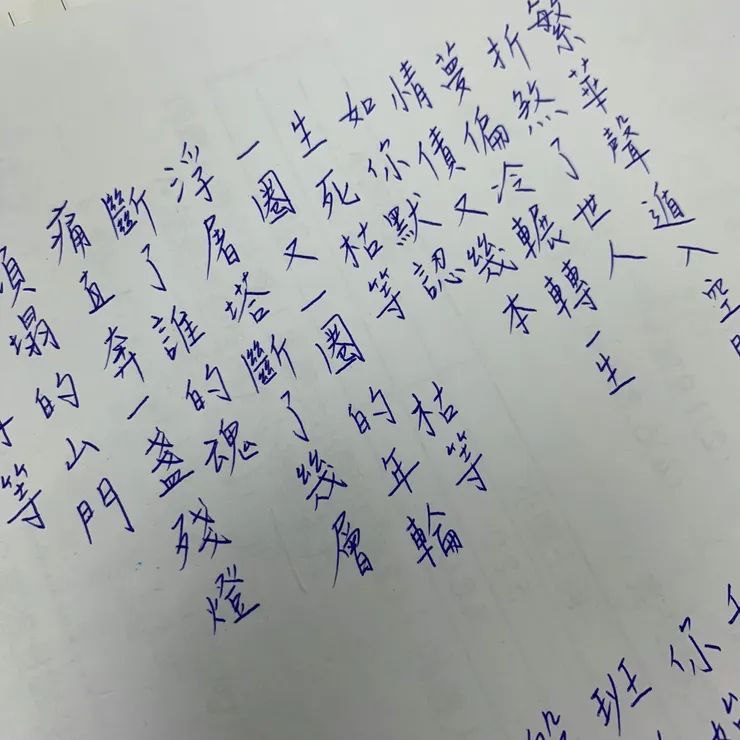 繁華聲遁入空
折煞了世人
夢偏冷輾轉一生
情債又幾本
如你默認
生死枯等枯等
一圈又一圈的年輪
浮屠塔斷了幾層
斷了誰的魂
痛直奔一盞殘燈
塌的山門
等
你
班